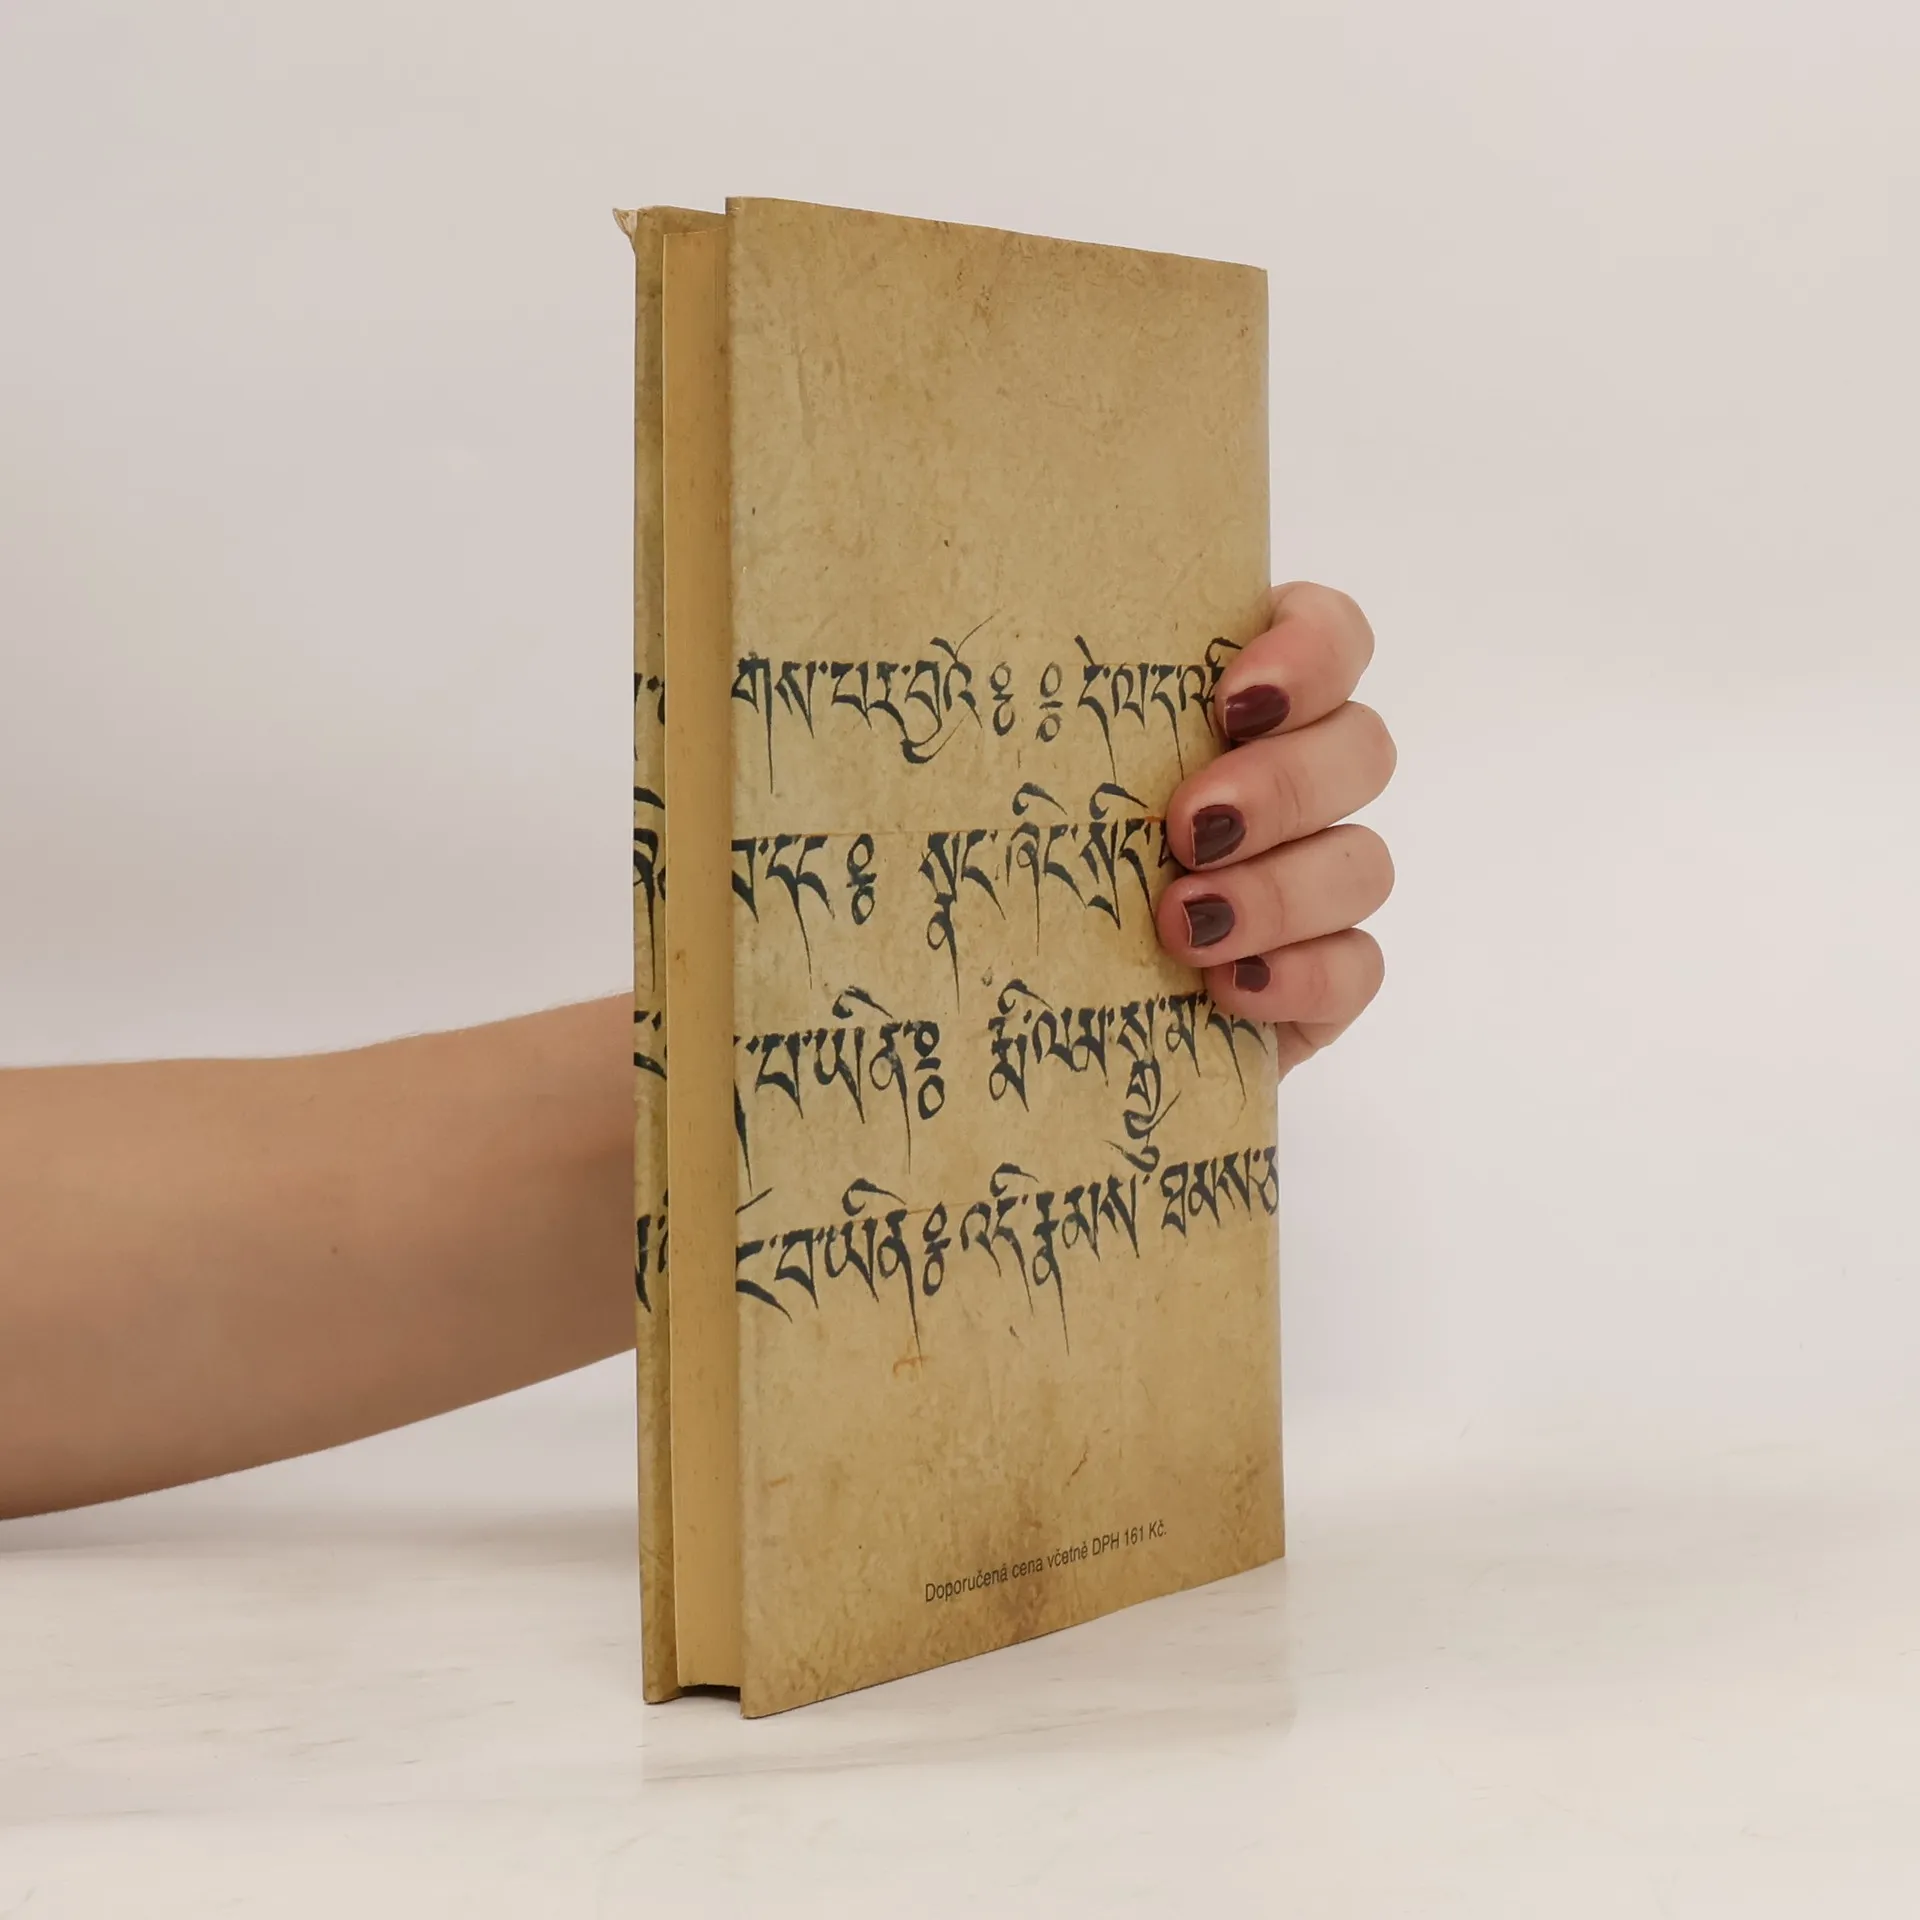 གས་པར་བྱའོ༔ ༔ དེ་ལ་དང
བ་དང༔ སྣང་ཞིང་སྲིད་
པ་ཡིན༔ རྨི་ལམ་སྒྱུ་མ་དང
ང་བ་ཡིན༔ འདི་རྣམས་ ཐམས་ཅ
Doporučená cena včetně DPH 161 Kč.